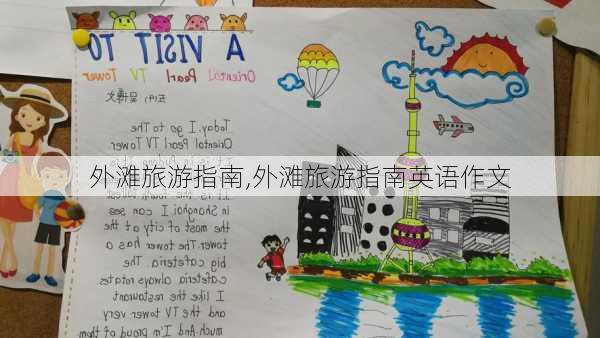 A VISIT TO
Oriental Pearl TV Tower
Today. I go to The
Oriental Pearl TV Tower
外滩旅游指南,外滩旅游指南英语作文
in Shanghai. I can see
the most of city at the
Tower. The Tower has a
big cafeteria. The
cafeteria always rotates
I like the restaurant
and the TV tower very
much. And I'm proud of them